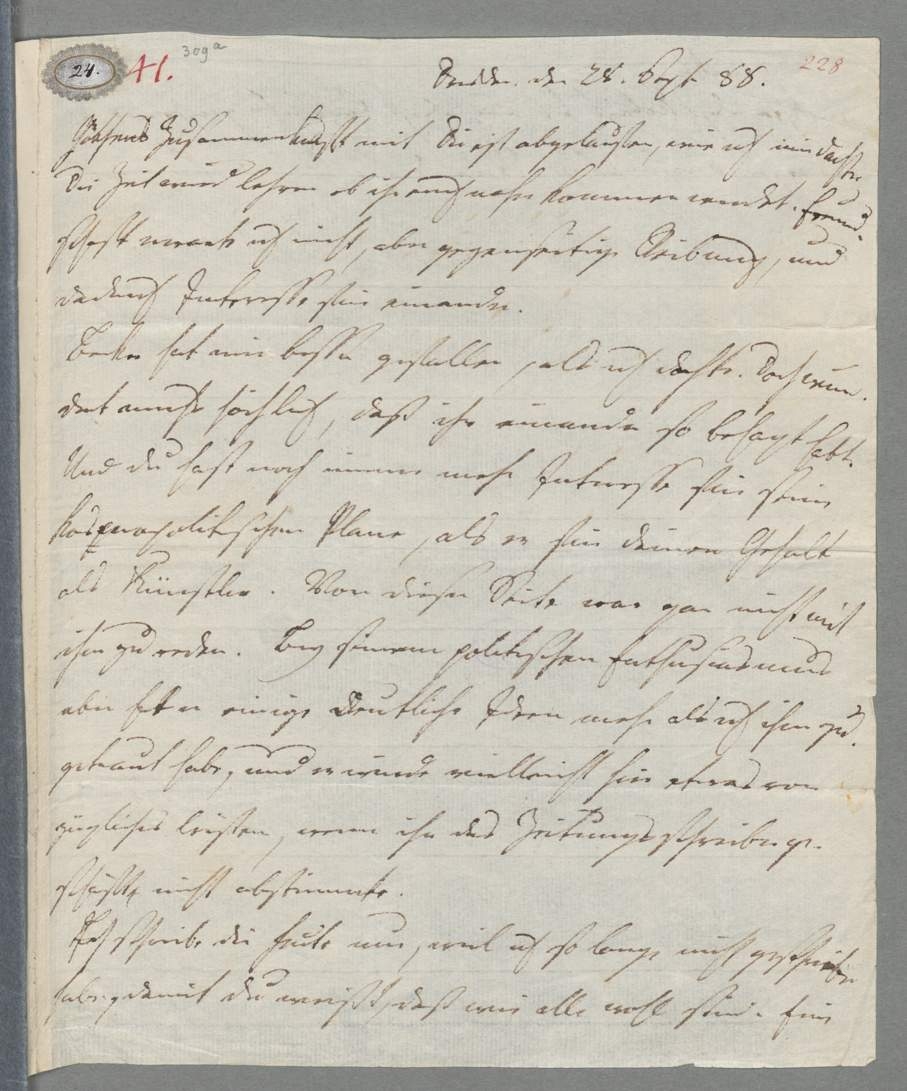 24. 41. 309a 228
Dresden den 28. Sept 88.
Göthens Zusammenkunft mit Dir ist abgelaufen, wie ich mir dachte.
Die Zeit wird lehren ob ihr euch näher kommen werdet. Freund-
schaft erwarte ich nicht, aber gegenseitige Reibung, und
dadurch Interesse für einander.
Becker hat mir besser gefallen, als ich dachte. Doch wun-
dert michs höchlich, daß ihr einander so behagt habt.
Und du hast noch immer mehr Interesse für seine
kosmopolitischen Plane, als er für deinen Gehalt
als Künstler. Von dieser Seite war gar nicht mit
ihm zu reden. Bey seinem politischen Enthusiasmus
aber hat er einige deutliche Ideen mehr als ich ihm zu-
getraut habe, und er würde vielleicht hier etwas vor-
zügliches leisten, wenn ihn das Zeitungsschreiberge-
schäfte nicht abstimmte.
Ich schreibe dir heute nur, weil ich so lange nicht geschrieben
habe, damit du weißt, daß wir alle wohl sind. Eine